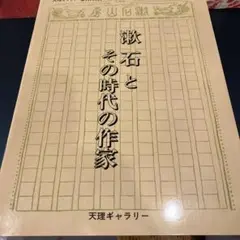 漱石と
その時代の作家
天理ギャラリー